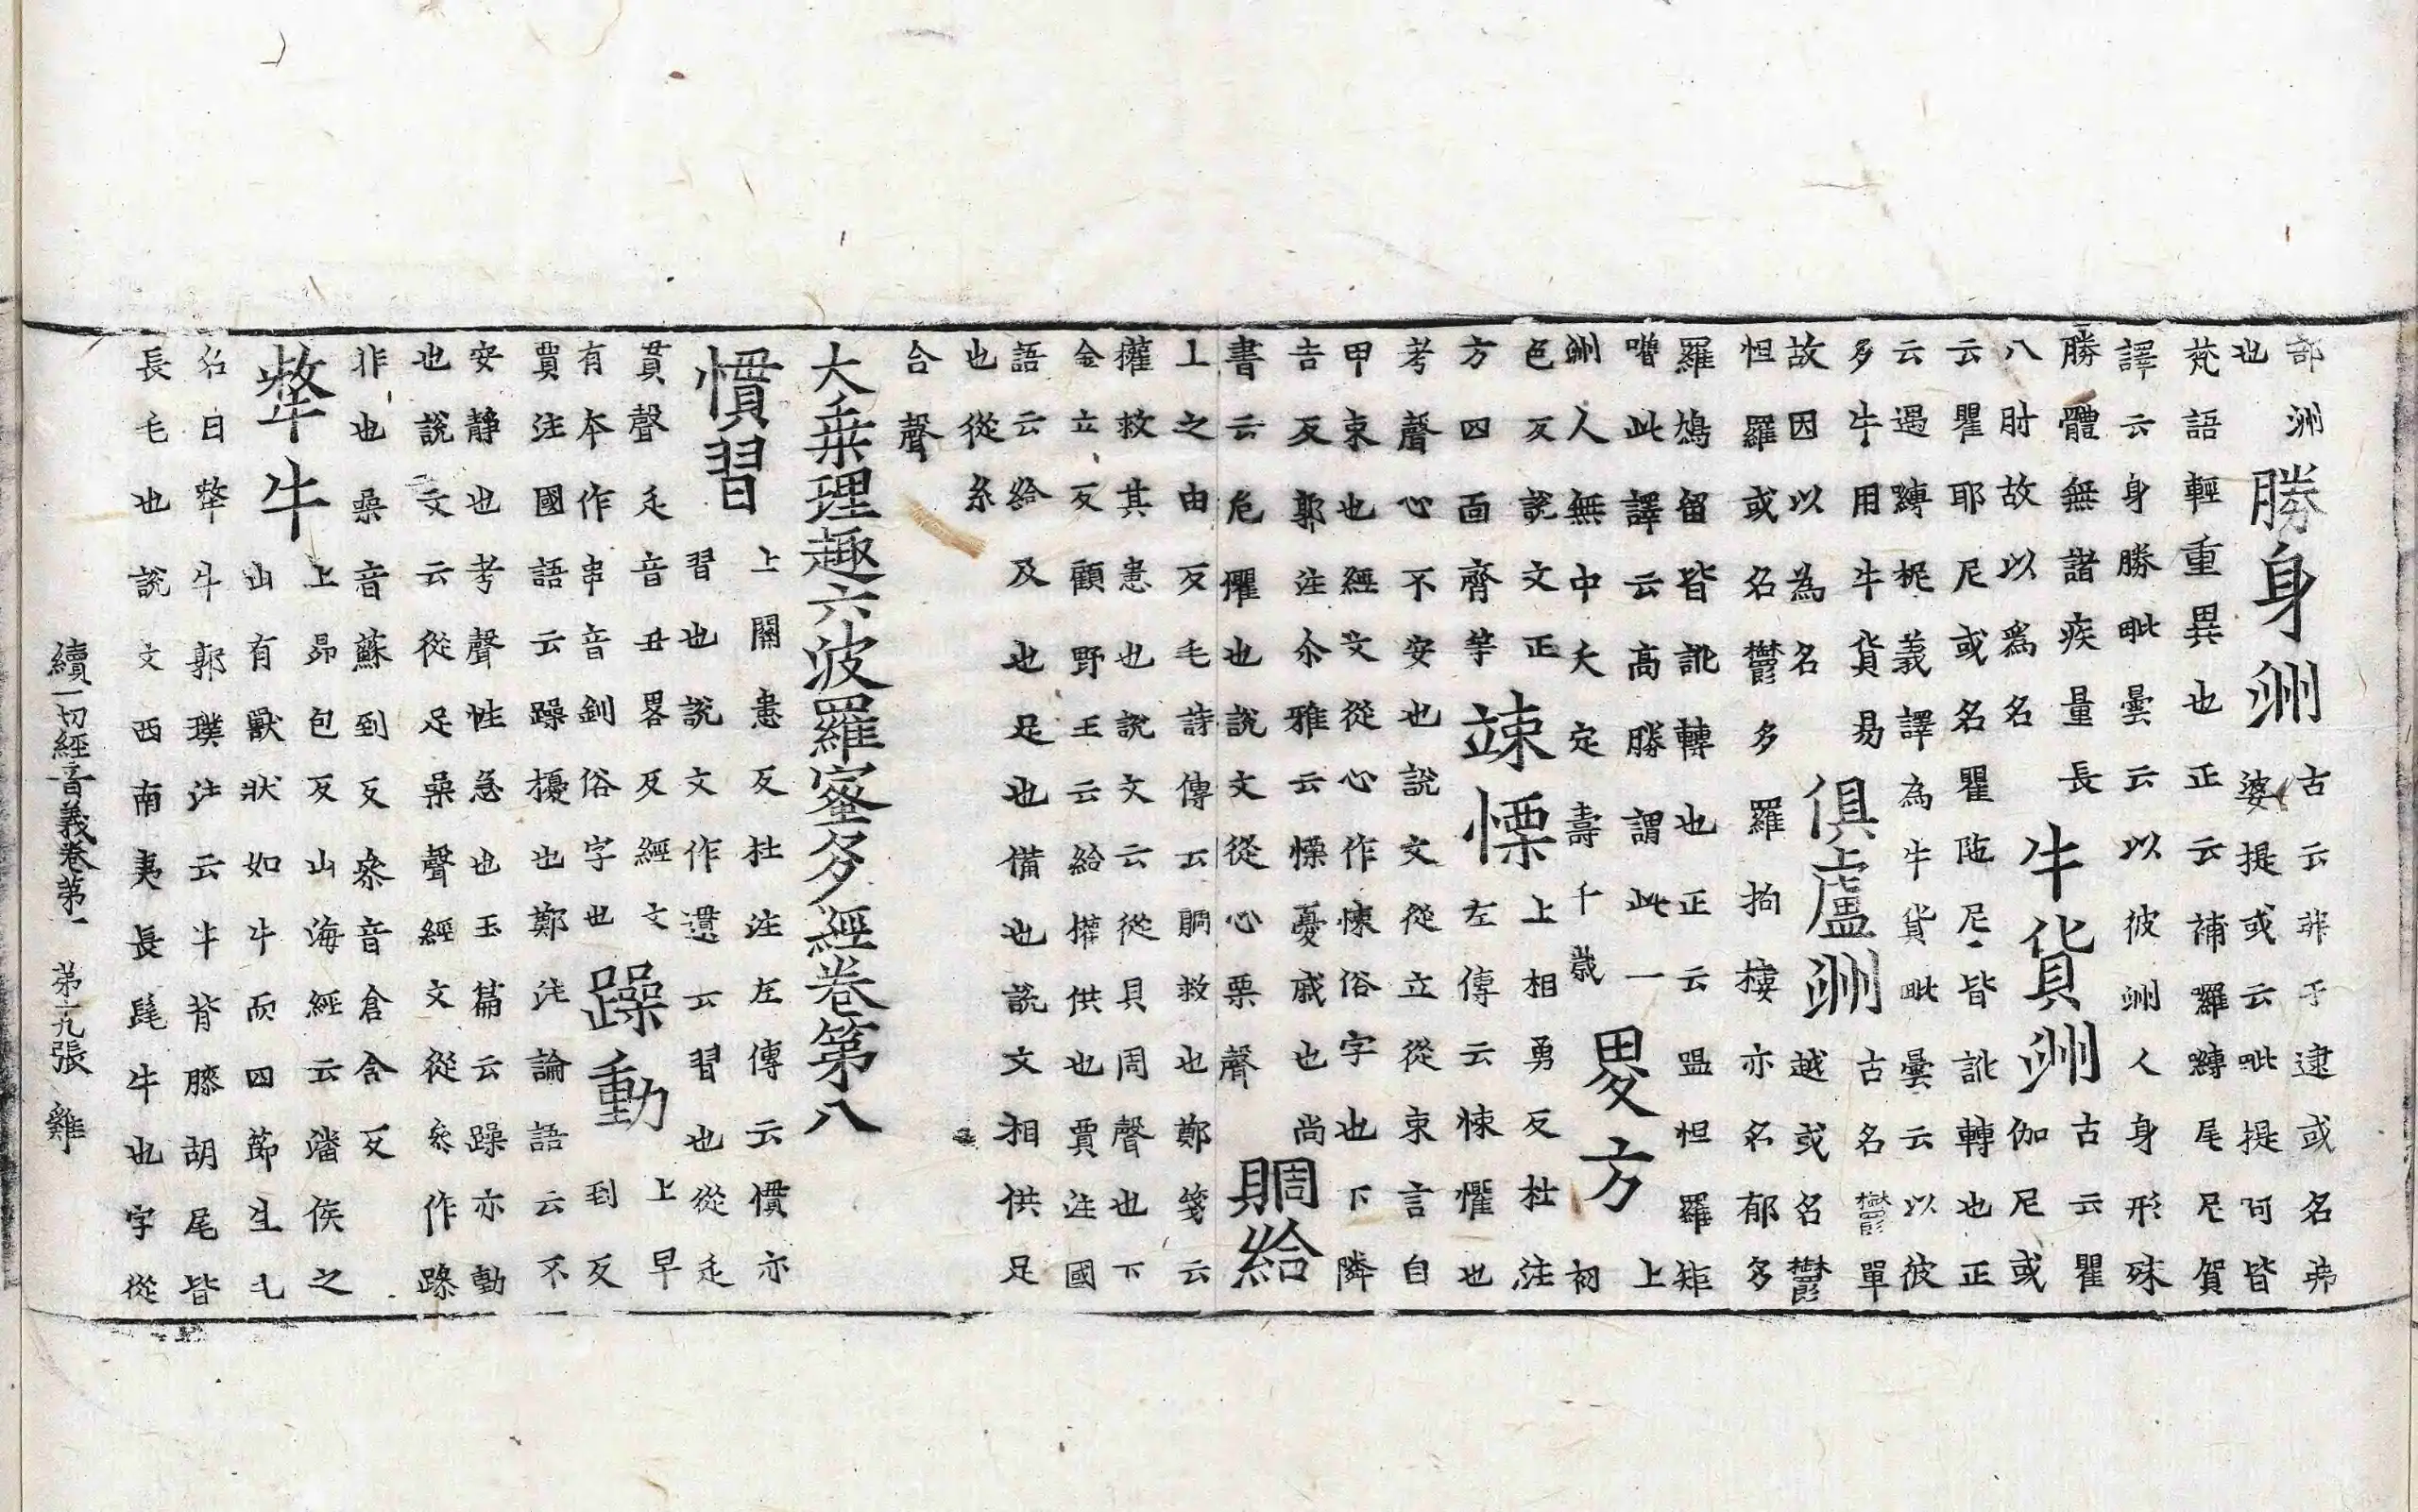 部洲
也
勝身洲
古云弗于逮或名弗
婆提或云毗提訶皆
梵語輕重異也正云補囉嚩尾尼賀
譯云身勝毗曇云以彼洲人身形殊
勝體無諸疾量長
八肘故以爲名
牛貨洲
古云瞿
伽尼或
云瞿耶尼或名瞿陁尼皆訛轉也正
云過嚩柅義譯為牛貨毗曇云以彼
多牛用牛貨易
故因以為名
俱盧洲
古名鬱單
越或名鬱
怛羅或名鬱多羅拘樓亦名郁多
羅鳩留皆訛轉也正云嗢怛羅矩
嚕此譯云高勝謂此一
洲人無中夭定壽千歲
畟方
上
初
色反說文正
方四面齊等
竦慄
上相勇反杜注
左傳云悚懼也
考聲心不安也說文從立從束言自
甲束也經文從心作悚俗字也下隣
吉反郭注尒雅云慄憂慼也尚
書云危懼也說文從心栗聲
賙給
上之由反毛詩傳云賙救也鄭箋云
權救其恚也說文云從貝周聲也下
金立反顧野王云給供也賈注國
語云給及也足也備也說文相供足
也從糸
合聲
大乗理趣六波羅蜜多經卷第八
慣習
上關患反杜注左傳云慣亦
習也說文作遦云習也從辵
貫聲辵音丑畧反經文
有本作串音釧俗字也
躁動
上早
到反
賈注國語云躁擾也鄭注論語云不
安靜也考聲性急也玉篇云躁亦動
也說文云從足喿聲經文從叅作躁
非也喿音蘇到反叅音倉含反
犛牛
上昴包反山海經云潘侯之
山有獸狀如牛而四節生毛
名曰犛牛郭璞注云牛背膝胡尾皆
長毛也說文西南夷長髦牛也字從
續一切經音義卷第一 第十九張 雞